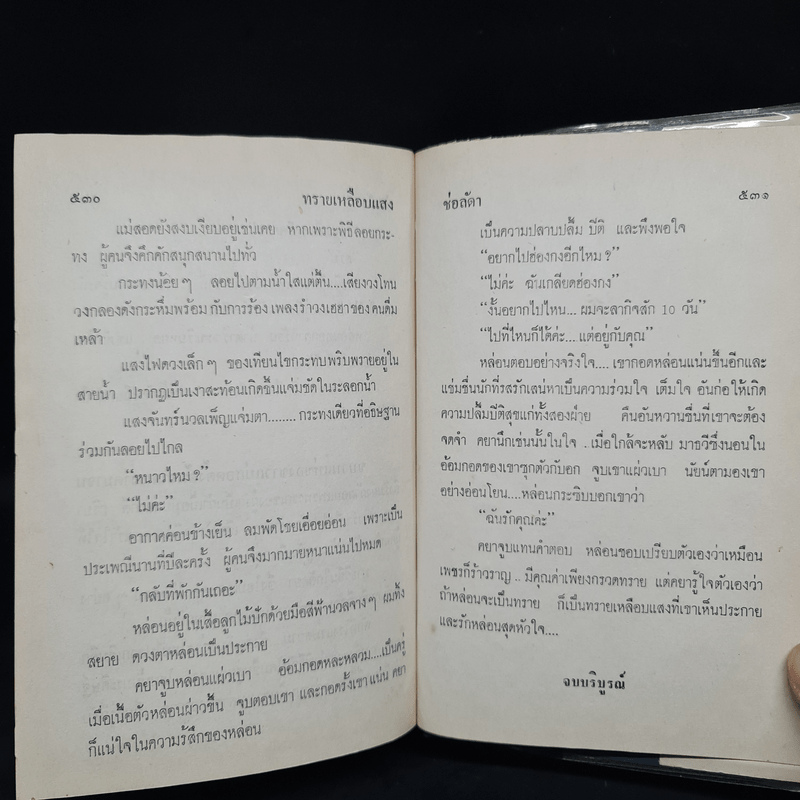 ๕๓๐ ทรายเหลือบแสง
แม่สอดยังสงบเงียบอยู่เช่นเคย หากเพราะพิธีลอยกระ-
ทง ผู้คนจึงคึกคักสนุกสนานไปทั่ว
กระทงน้อยๆ ลอยไปตามน้ำใสแต่ตื้น....เสียงวงโทน
วงกลองดังกระหึ่มพร้อมกับการร้อง เพลงรำวงเฮฮาของคนดื่ม
เหล้า
แสงไฟดวงเล็กๆ ของเทียนไขกระทบพริบพรายอยู่ใน
สายน้ำ ปรากฏเป็นเงาสะท้อนเกิดขึ้นแจ่มชัดในระลอกน้ำ
แสงจันทร์นวลเพ็ญแจ่มตา........กระทงเดียวที่อธิษฐาน
ร่วมกันลอยไปไกล
“หนาวไหม?”
“ไม่ค่ะ”
อากาศค่อนข้างเย็น ลมพัดโชยเอื่อยอ่อน เพราะเป็น
ประเพณีนานทีปีละครั้ง ผู้คนจึงมากมายหนาแน่นไปหมด
“กลับที่พักกันเถอะ”
หล่อนอยู่ในเสื้อลูกไม้ปักด้วยมือสีฟ้านวลจางๆ ผมทิ้ง
สยาย ดวงตาหล่อนเป็นประกาย
คยาจูบหล่อนแผ่วเบา อ้อมกอดหละหลวม....เป็นครู่
เมื่อเนื้อตัวหล่อนผ่าวขึ้น จูบตอบเขา และกอดรั้งเขาแน่น คยา
ก็แน่ใจในความรู้สึกของหล่อน
ช่อลัดา ๕๓๑
เป็นความปลาบปลื้ม ปีติ และพึงพอใจ
“อยากไปฮ่องกงอีกไหม?”
“ไม่ค่ะ ฉันเกลียดฮ่องกง”
“งั้นอยากไปไหน... ผมจะลากิจสัก 10 วัน”
“ไปที่ไหนก็ได้ค่ะ... แต่อยู่กับคุณ”
หล่อนตอบอย่างจริงใจ.... เขากอดหล่อนแน่นขึ้นอีกและ
แช่มชื่นนักที่รสรักเสน่หาเป็นความร่วมใจ เต็มใจ อันก่อให้เกิด
ความปลื้มปีติสุขแก่ทั้งสองฝ่าย คืนอันหวานชื่นที่เขาจะต้อง
จดจำ คยานึกเช่นนั้นในใจ . เมื่อใกล้จะหลับ มาธวีซึ่งนอนใน
อ้อมกอดของเขาซุกตัวกับอก จูบเขาแผ่วเบา นัยน์ตามองเขา
อย่างอ่อนโยน....หล่อนกระซิบบอกเขาว่า
“ฉันรักคุณค่ะ”
คยาจูบแทนคำตอบ หล่อนชอบเปรียบตัวเองว่าเหมือน
เพชรก็ร้าวราญ .. มีคุณค่าเพียงกรวดทราย แต่คยารู้ใจตัวเองว่า
ถ้าหล่อนจะเป็นทราย ก็เป็นทรายเหลือบแสงที่เขาเห็นประกาย
และรักหล่อนสุดหัวใจ....
จบบริบูรณ์